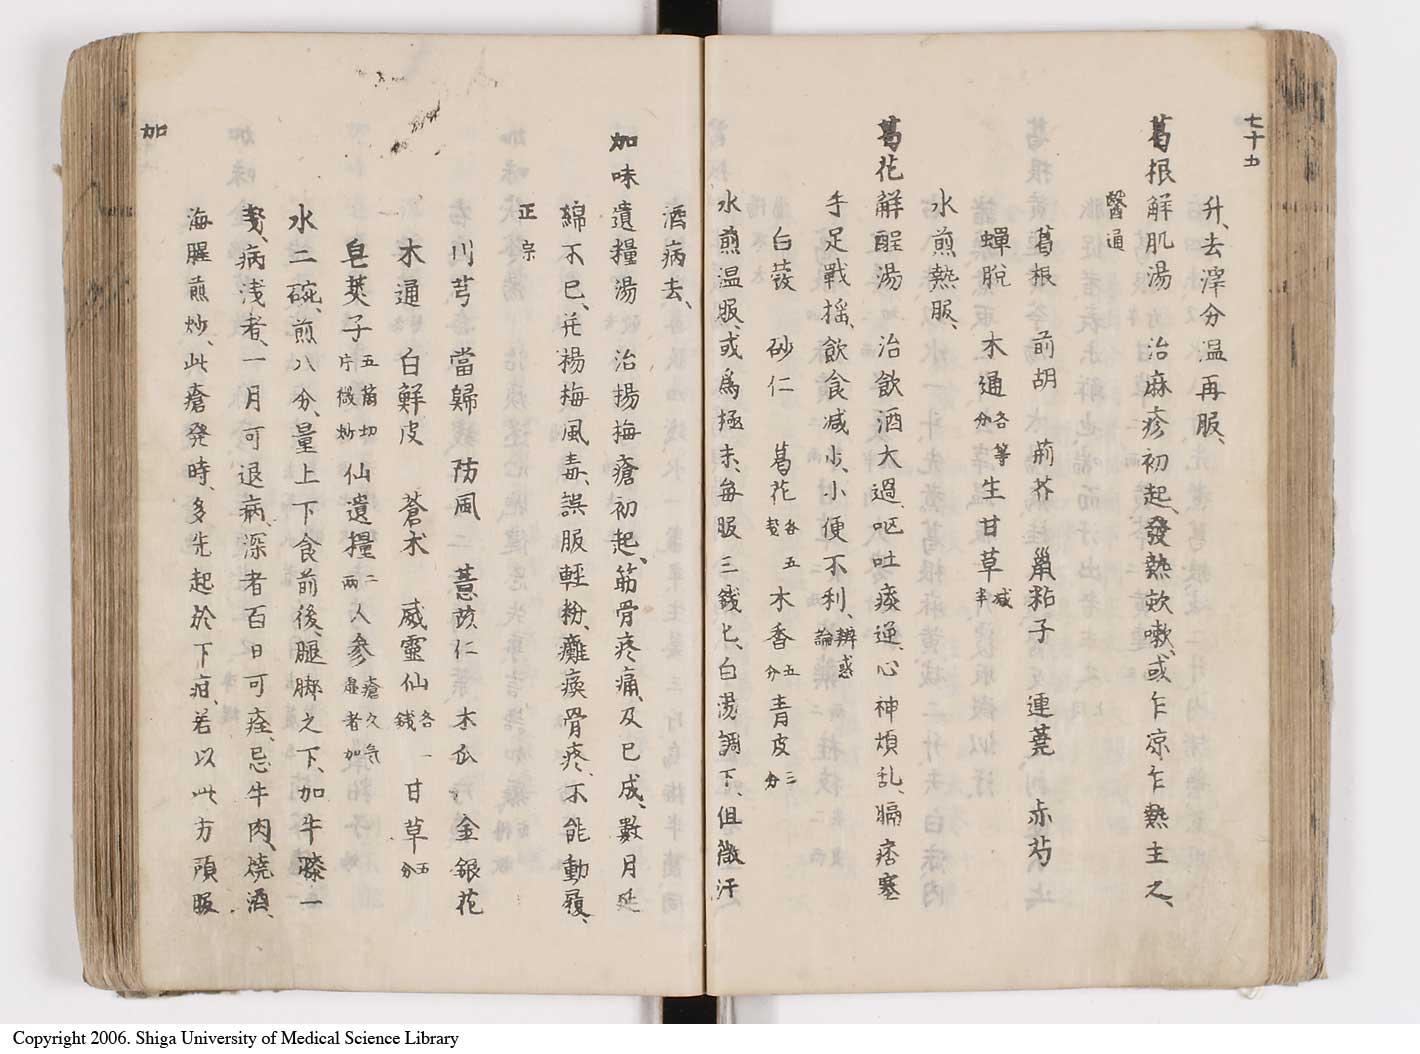 七十五
升、去滓分温再服、
葛根解肌湯 治麻疹初起、發熱欬嗽、或乍凉乍熱主之、
醫通
葛根 前胡 荊芥 牛蒡子 連翹 赤芍
蟬脫 木通各等分 生甘草減半
水煎熱服、
葛花解酲湯 治飲酒大過、嘔吐痰逆、心神煩乱、膈痞塞
手足戰搖、飲食减少、小便不利、辨惑論
白蔻 砂仁 葛花各五戔 木香五分 青皮三分
水煎温服、或爲極末、每服三錢匕、白湯調下、但微汗
酒病去、
加味遺糧湯 治揚梅瘡初起、筋骨疼痛、及已成、數月延
綿不已、先楊梅風毒、誤服輕粉、癱瘓骨疼、不能動履、
正宗
川芎 當歸 防風 薏苡仁 木瓜 金銀花
木通 白鮮皮 蒼朮 威靈仙各一錢 甘草五分
皂莢子五箇切片微炒 仙遺糧二兩 人參瘡久氣虛者加
水二碗、煎八分、量上下食前後、腿脚之下、加牛膝一
戔、病浅者、一月可退、病深者百日可痊、忌牛肉、燒酒、
海腥煎炒、此瘡發時、多先起於下疳、若以此方預服
加